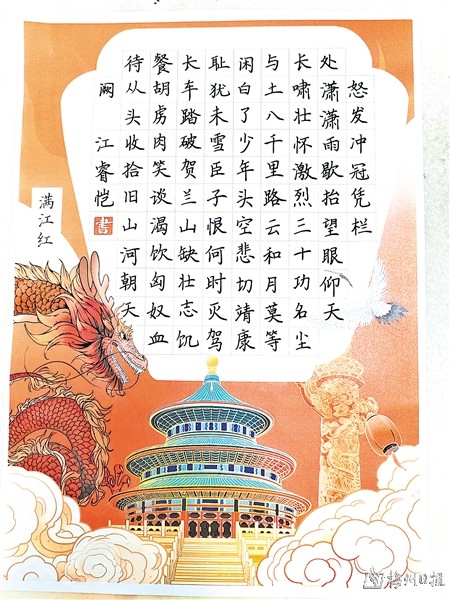 怒发冲冠凭栏
处潇潇雨歇抬望眼仰天
长啸壮怀激烈三十功名尘
与土八千里路云和月莫等
闲白了少年头空悲切靖康
耻犹未雪臣子恨何时灭驾
长车踏破贺兰山缺壮志饥
餐胡虏肉笑谈渴饮匈奴血
待从头收拾旧山河朝天
阙 江睿恺 書
满江红
梅州日报